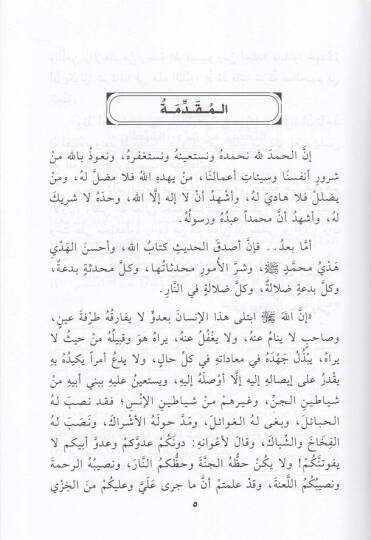 المُقَدِّمَةُ
إنَّ الحمدَ لله نحمدهُ ونستعينهُ ونستغفرهُ، ونعوذُ بالله منْ
شرورِ أنفسنَا وسيئاتِ أعمالنَا، منْ يهدهِ اللهُ فلا مضلَّ لهُ، ومنْ
يضللْ فلا هاديَ لهُ، وأشهدُ أنْ لا إله إلَّا الله، وحدَهُ لا شريكَ
لهُ، وأشهدُ أنَّ محمداً عبدُهُ ورسولُهُ.
أمَّا بعدُ.. فإنَّ أصدقَ الحديثِ كتابُ الله، وأحسنَ الهَدْيِ
هَدْيُ محمَّدٍ ﷺ، وشرَّ الأُمورِ محدثاتُها، وكلَّ محدثةٍ بدعةٌ،
وكلَّ بدعةٍ ضلالةٌ، وكلَّ ضلالةٍ في النَّارِ.
«إنَّ اللهَ ﷻ ابتلى هذا الإنسانَ بعدوٍّ لا يفارقُهُ طرْفةَ عينٍ،
وصاحبٍ لا ينامُ عنهُ، ولا يغْفُلُ عنهُ، يراهُ هوَ وقبيلُهُ منْ حيثُ لا
يراهُ، يبْذُلُ جَهْدَهُ في معاداتهِ في كلِّ حالٍ، ولا يدعُ أمراً يكيدُهُ بهِ
يقْدرُ على إيصالهِ إليه إلَّا أوْصلَهُ إليهِ، ويستعينُ عليهِ ببني أبيهِ منْ
شياطينِ الجنِّ، وغيرهمْ منْ شياطينِ الإنْسِ؛ فقد نصبَ لهُ
الحبائلَ، وبغى لهُ الغوائلَ، ومَدَّ حولَهُ الأشراكَ، ونَصَبَ لهُ
الفِخَاخَ والشِّباكَ، وقالَ لأعْوانهِ: دونَكُمْ عدوَّكمْ وعدوَّ أبيكم لا
يفوتنَّكُمْ! ولا يكُنْ حظُّهُ الجنَّةَ وحظُّكمُ النَّارَ، ونصيبُهُ الرحمةَ
ونصيبُكُمُ اللَّعنةَ، وقدْ علمتمْ أنَّ ما جرى عَلَيَّ وعليكُم منَ الخِزْيِ
٥